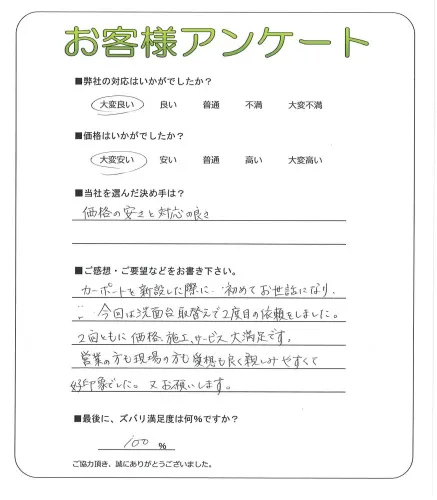 お客様アンケート
■弊社の対応はいかがでしたか?
大変良い 良い 普通 不満 大変不満
■価格はいかがでしたか?
大変安い 安い 普通 高い 大変高い
■当社を選んだ決め手は?
価格の安さと対応の良さ
■ご感想・ご要望などをお書き下さい。
カーポートを新設した際に、初めてお世話になり、
今回は洗面台取替えで2度目の依頼をしました。
2回ともに価格、施工、サービス大満足です。
営業の方も現場の方も愛想も良く親しみやすくて
好印象でした。又お願いします。
■最後に、ズバリ満足度は何%ですか?
100 %
ご協力頂き、誠にありがとうございました。